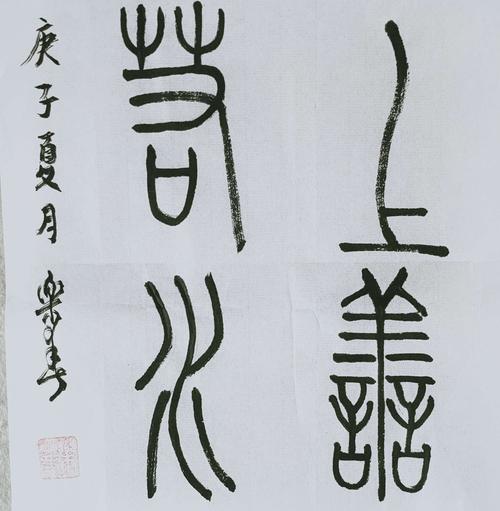 上善
若水
庚子夏月